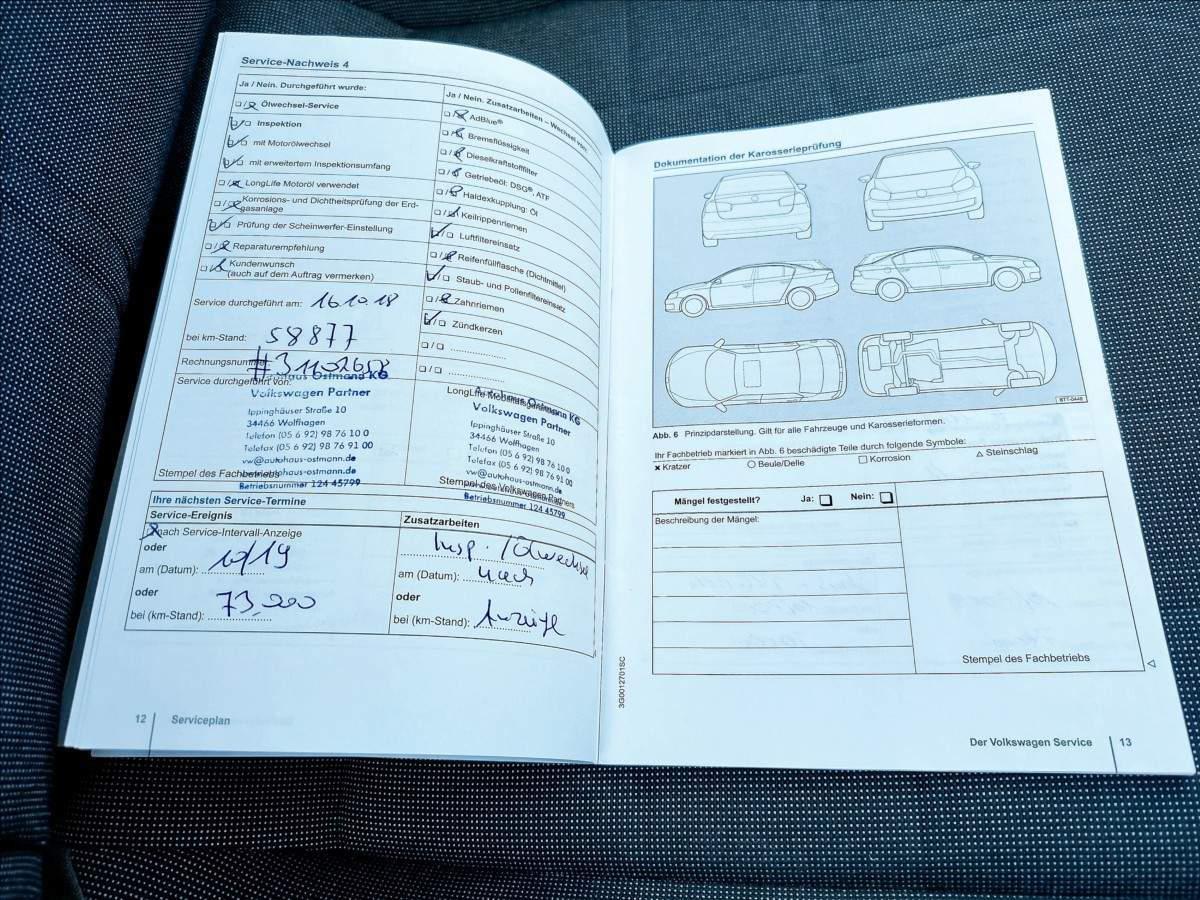 Service-Nachweis 4
Ja / Nein. Durchgeführt wurde:
Ölwechsel-Service
Inspektion
mit Motorölwechsel
mit erweitertem Inspektionsumfang
LongLife Motoröl verwendet
Korrosions- und Dichtheitsprüfung der Erd-
gasanlage
Prüfung der Scheinwerfer-Einstellung
Reparaturempfehlung
Kundenwunsch
(auch auf dem Auftrag vermerken)
Service durchgeführt am: 16.10.18
bei km-Stand: 58877
Rechnungsnummer:
Service durchgeführt von:
Autohaus Ostmann KG
Volkswagen Partner
Ippinghäuser Straße 10
34466 Wolfhagen
Telefon (05 6 92) 98 76 10 0
Telefax (05 6 92) 98 76 91 00
vw@autohaus-ostmann.de
www.autohaus-ostmann.de
Stempel des Fachbetriebs
Betriebsnummer 124 45799
Ja / Nein. Zusatzarbeiten – Wechsel von:
AdBlue®
Bremsflüssigkeit
Dieselkraftstofffilter
Getriebeöl: DSG®, ATF
Haldexkupplung: Öl
Keilrippenriemen
Luftfiltereinsatz
Reifenfüllflasche (Dichtmittel)
Staub- und Pollenfiltereinsatz
Zahnriemen
Zündkerzen
Autohaus Ostmann KG
Volkswagen Partner
Ippinghäuser Straße 10
34466 Wolfhagen
Telefon (05 6 92) 98 76 10 0
Telefax (05 6 92) 98 76 91 00
vw@autohaus-ostmann.de
Stempel des Volkswagen Partners
Betriebsnummer 124 45799
Ihre nächsten Service-Termine
Service-Ereignis
nach Service-Intervall-Anzeige
oder
am (Datum): 10/19
oder
bei (km-Stand): 73.200
Zusatzarbeiten
Insp. / Ölwechsel
am (Datum): nach
oder
bei (km-Stand): Anzeige
12 Serviceplan
Dokumentation der Karosserieprüfung
BTT-0448
Abb. 6 Prinzipdarstellung. Gilt für alle Fahrzeuge und Karosserieformen.
Ihr Fachbetrieb markiert in Abb. 6 beschädigte Teile durch folgende Symbole:
Kratzer Beule/Delle Korrosion Steinschlag
Mängel festgestellt? Ja: Nein:
Beschreibung der Mängel:
Stempel des Fachbetriebs
3G0012701SC
Der Volkswagen Service 13